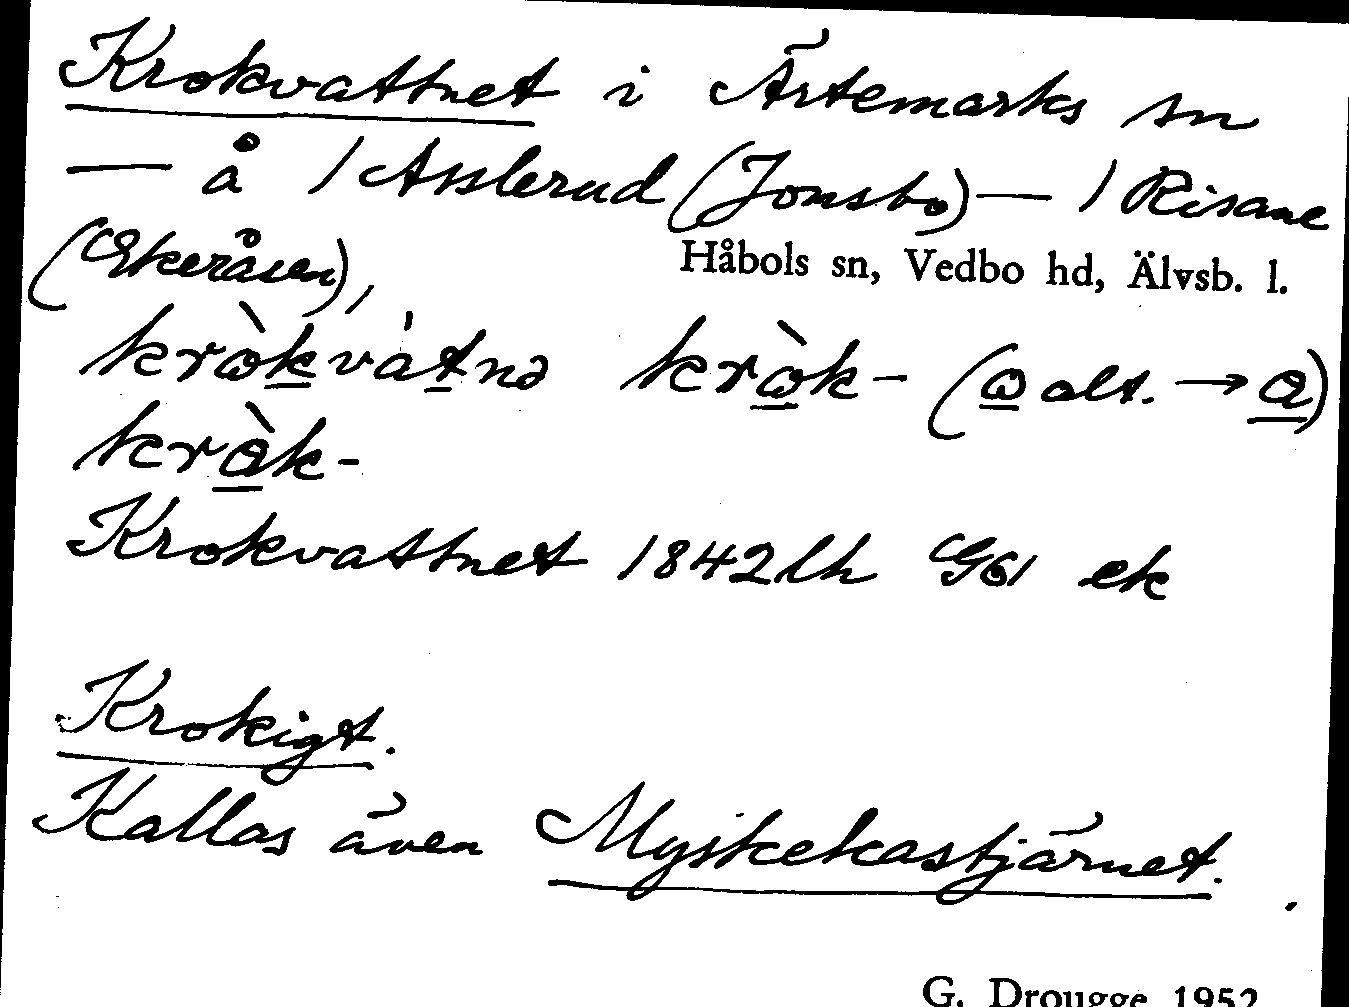 Krokvattnet i Ärtemarks sn
— å / Asslerud (Jonsbo) — / Risane
(Ekeråsen), Håbols sn, Vedbo hd, Älvsb. l.
kròkvátnə kròk- (o alt. → a)
kròk-
Krokvattnet 1842 lh G61 ek
Krokigt.
Kallas även Myskekastjärnet.
G. Drougge 1952